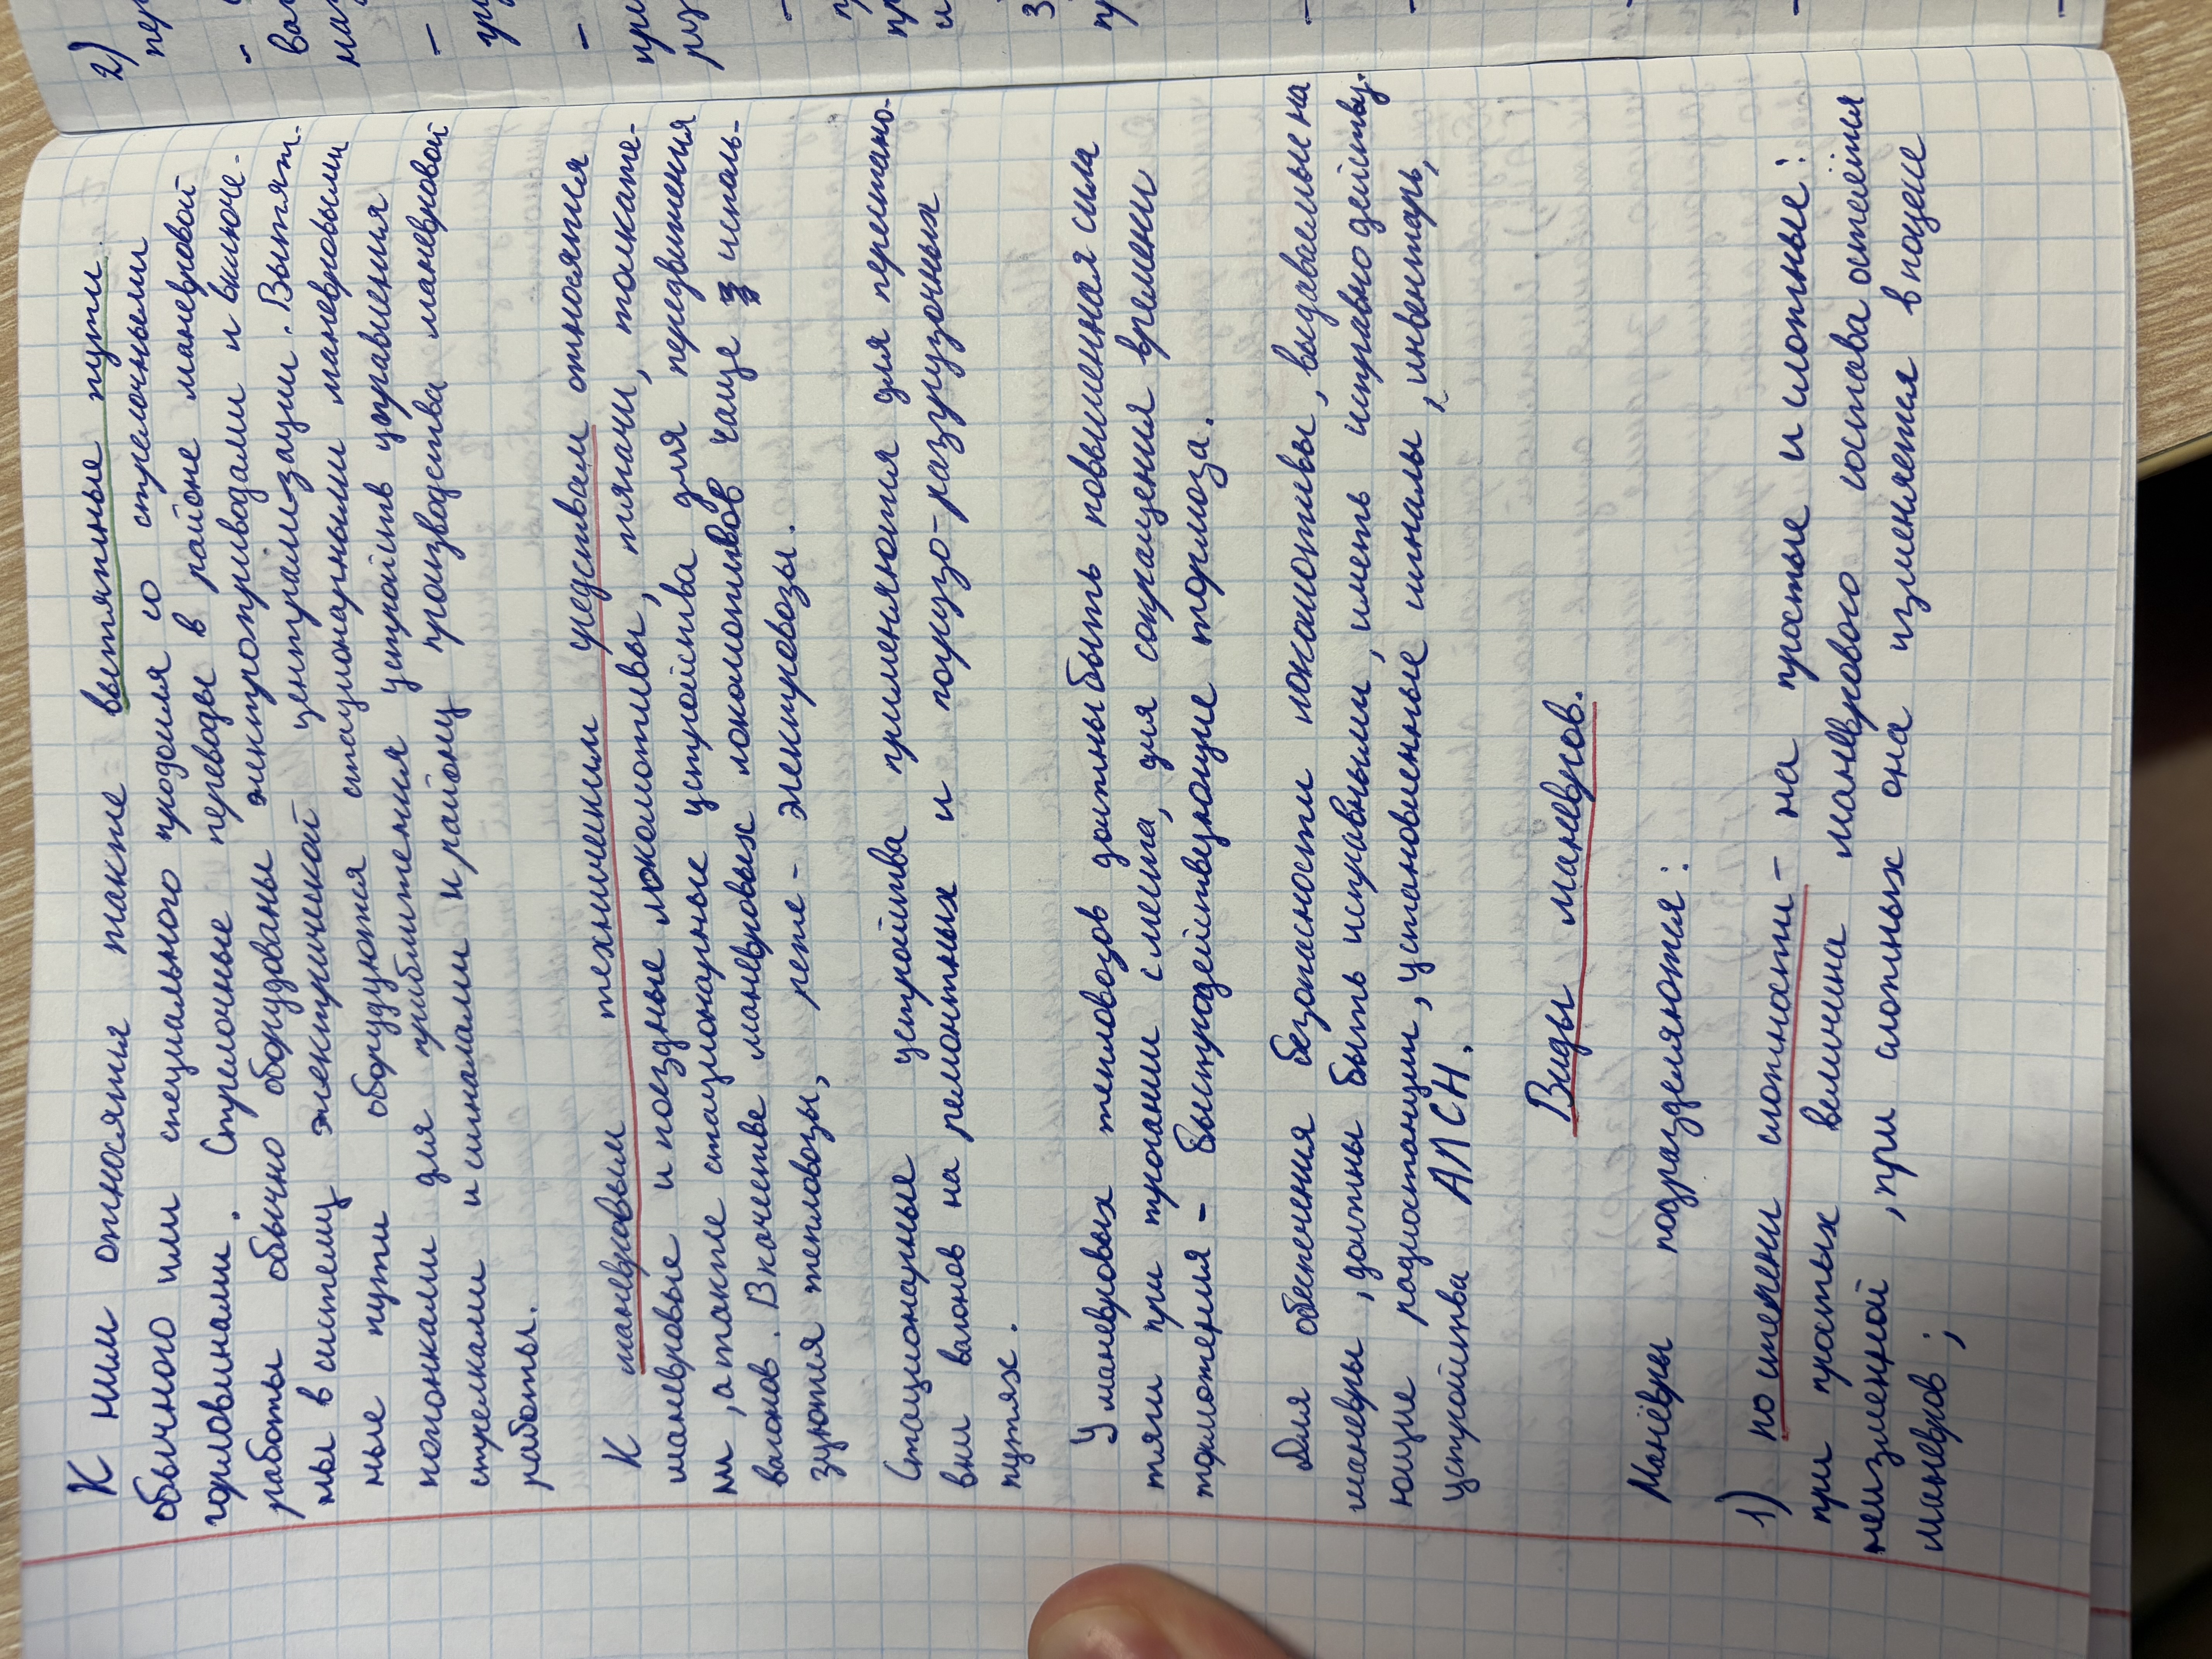 К ним относятся также вытяжные пути
обычного или специального профиля со стрелочными
горловинами. Стрелочные переводы в районе маневровой
работы обычно оборудованы электроприводами и включе-
ны в систему электрической централизации. Вытяж-
ные пути оборудуются стационарными маневровыми
колонками для приближения устройств управления
стрелками и сигналами к району производства маневровой
работы.
К маневровым техническим средствам относятся
маневровые и поездные локомотивы, тягачи, толкате-
ли, а также стационарные устройства для передвижения
вагонов. В качестве маневровых локомотивов чаще исполь-
зуются тепловозы, реже - электровозы.
Стационарные устройства применяются для перестано-
вки вагонов на ремонтных и погрузо-разгрузочных
путях.
У маневровых тепловозов должны быть повышенная сила
тяги при трогании с места, для сокращения времени
торможения - быстродействующие тормоза.
Для обеспечения безопасности локомотивы, выдаваемые на
маневры, должны быть исправными, иметь исправно действу-
ющие радиостанции, установленные сигналы, инвентарь,
устройства АЛСН.
Виды маневров.
Манёвры подразделяются:
1) по степени сложности - на простые и сложные:
при простых величина маневрового состава остаётся
неизменной, при сложных она изменяется в поцессе
маневров;
2)